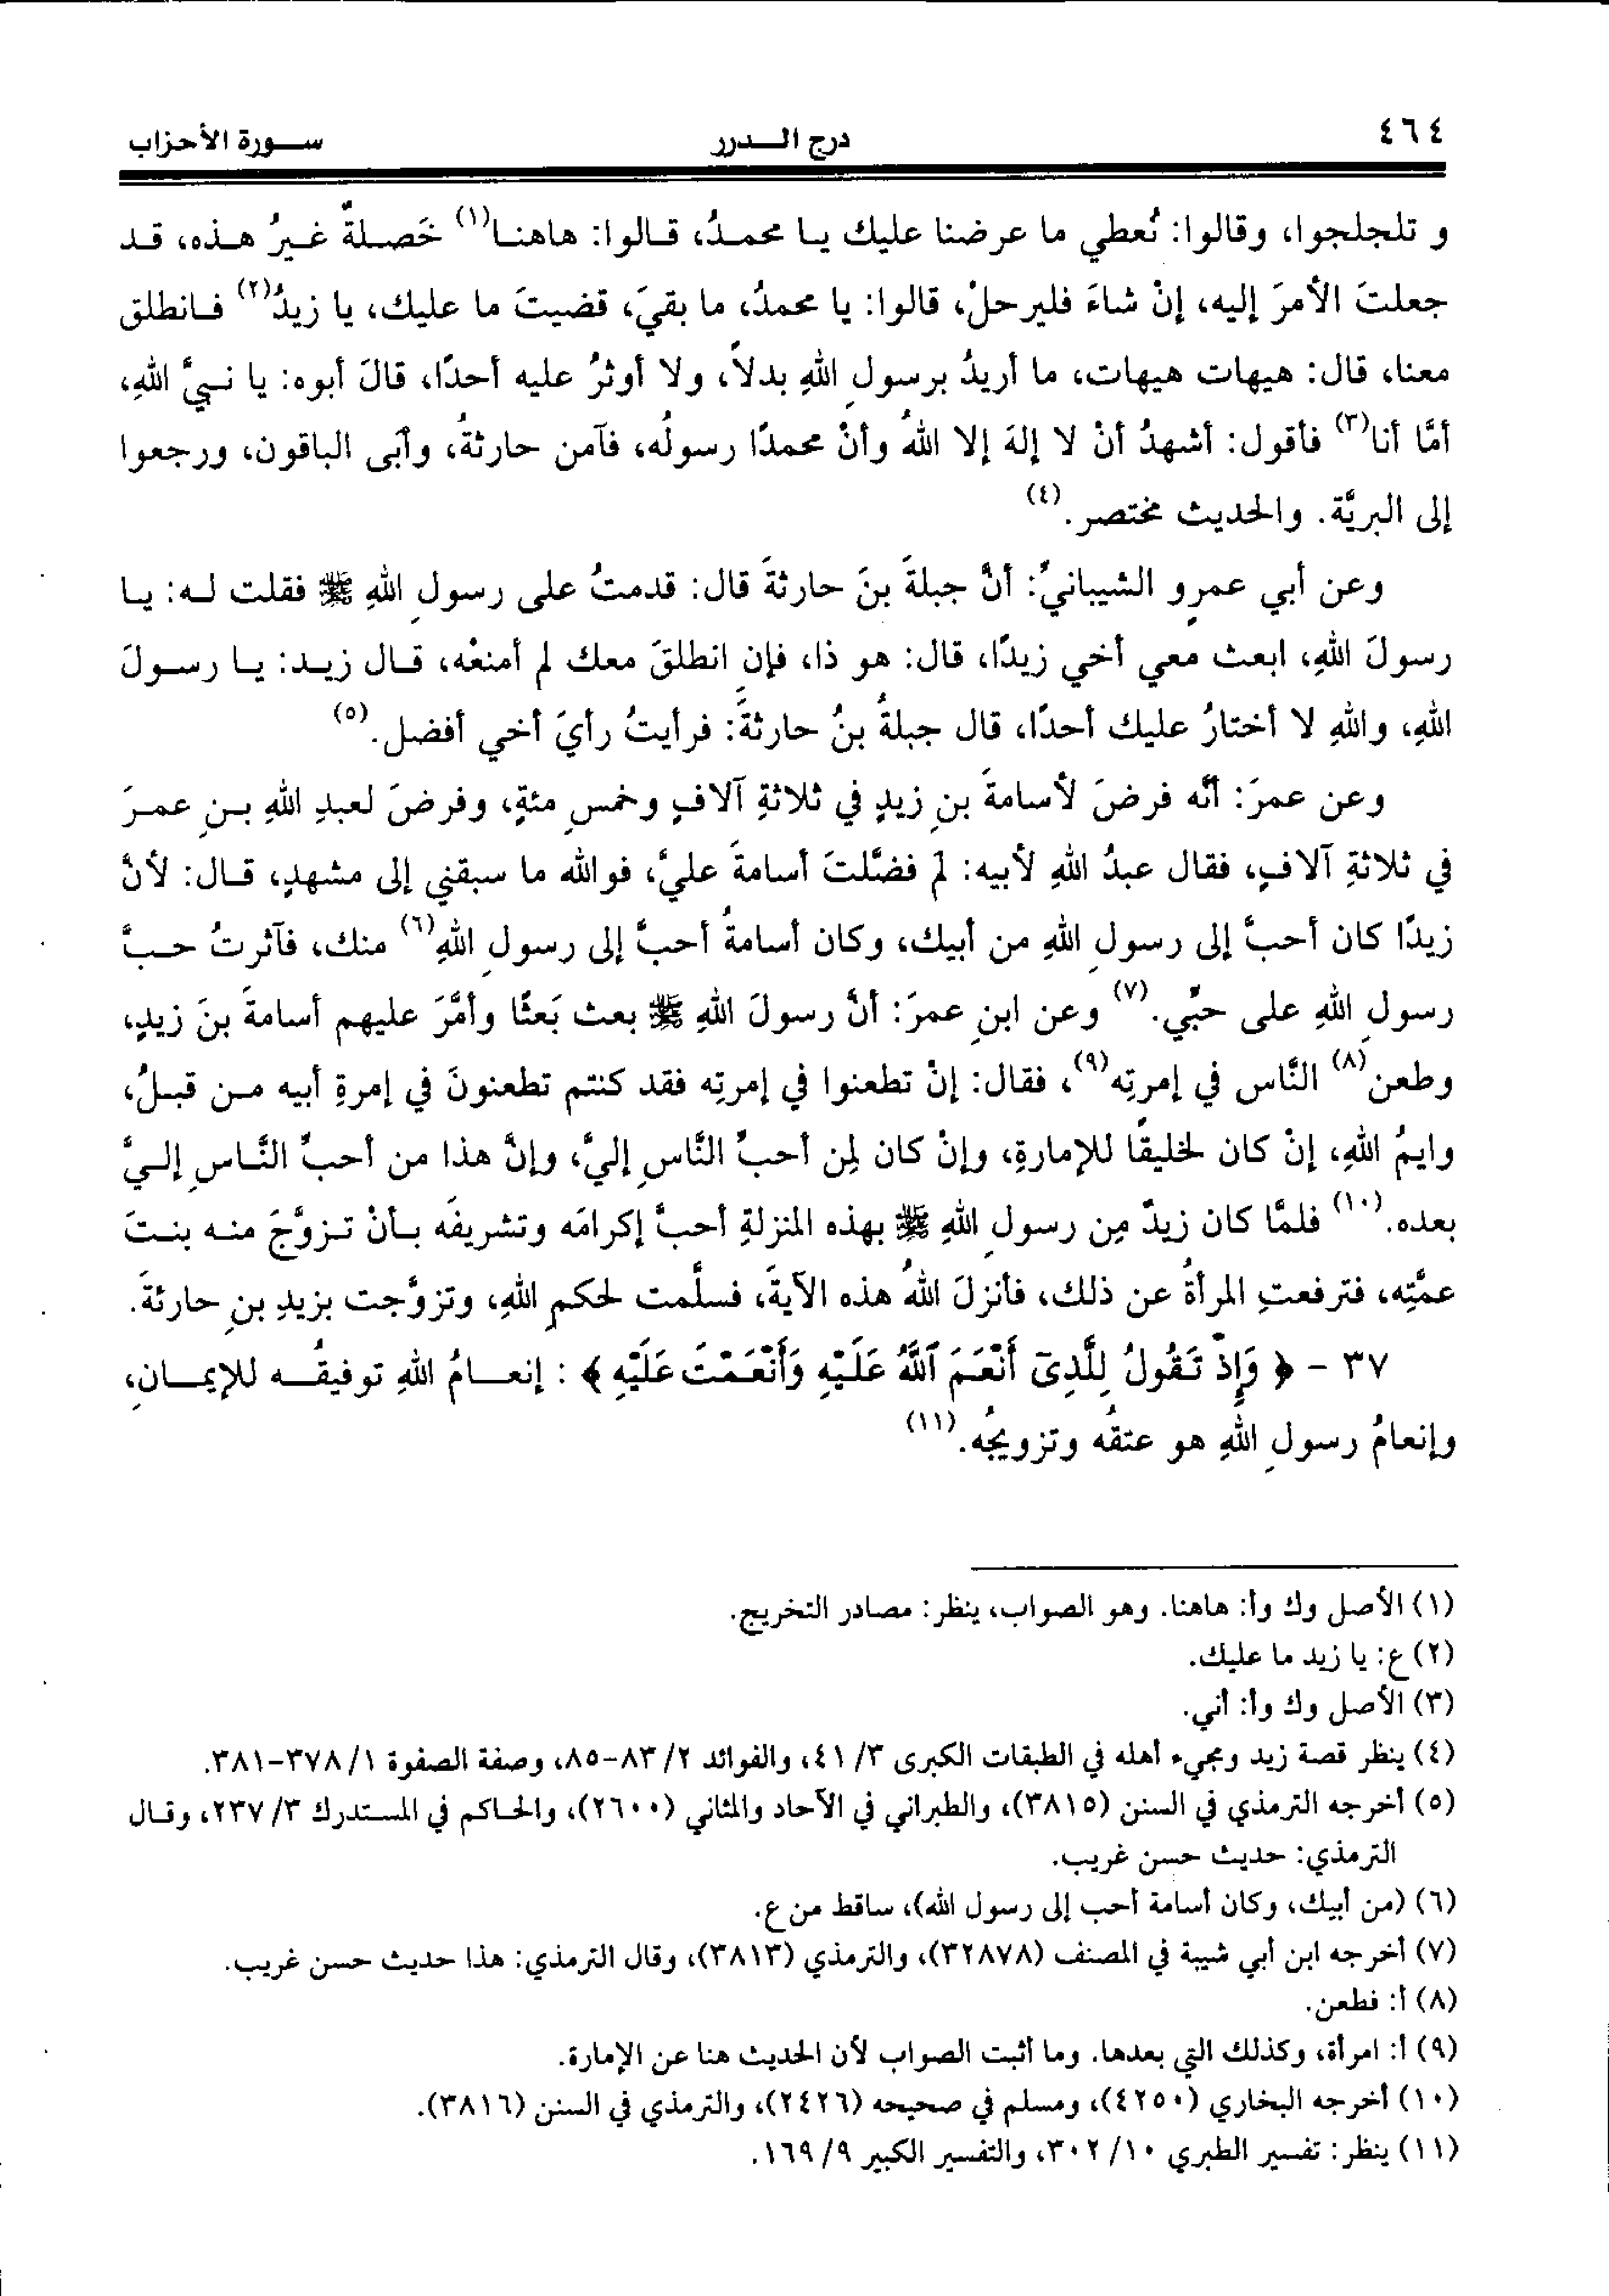 ٤٦٤
درج الـــدرر
ســـورة الأحزاب
و تلجلجوا، وقالوا: نُعطي ما عرضنا عليك يـا محمـدُ، قـالوا: هاهنـا(١) خَصـلةٌ غـيرُ هـذه، قـد
جعلتَ الأمرَ إليه، إنْ شاءَ فليرحلْ، قالوا: يا محمدُ، ما بقيَ، قضيتَ ما عليك، يا زيدُ(٢) فـانطلق
معنا، قال: هيهات هيهات، ما أريدُ برسولِ اللهِ بدلاً، ولا أوثرُ عليه أحدًا، قالَ أبوه: يا نـبيَّ اللهِ،
أمَّا أنا(٣) فأقول: أشهدُ أنْ لا إلهَ إلا اللهُ وأنَّ محمدًا رسولُه، فآمن حارثةُ، وأبَى الباقون، ورجعوا
إلى البريَّة. والحديث مختصر.(٤)
وعن أبي عمرٍو الشيبانيِّ: أنَّ جبلةَ بنَ حارثةَ قال: قدمتُ على رسولِ اللهِ ﷺ فقلت لـه: يـا
رسولَ اللهِ، ابعث معي أخي زيدًا، قال: هو ذا، فإن انطلقَ معك لم أمنعْه، قـال زيـد: يـا رسـولَ
اللهِ، واللهِ لا أختارُ عليك أحدًا، قال جبلةُ بنُ حارثةَ: فرأيتُ رأيَ أخي أفضل.(٥)
وعن عمرَ: أنَّه فرضَ لأسامةَ بنِ زيدٍ في ثلاثةِ آلافٍ وخمسِ مئةٍ، وفرضَ لعبدِ اللهِ بـنِ عمـرَ
في ثلاثةِ آلافٍ، فقال عبدُ اللهِ لأبيه: لِمَ فضَّلتَ أسامةَ عليَّ، فوالله ما سبقني إلى مشهدٍ، قـال: لأنَّ
زيدًا كان أحبَّ إلى رسولِ اللهِ من أبيك، وكان أسامةُ أحبَّ إلى رسولِ اللهِ(٦) منك، فآثرتُ حـبَّ
رسولِ اللهِ على حبِّي.(٧) وعن ابنِ عمرَ: أنَّ رسولَ اللهِ ﷺ بعث بَعثًا وأمَّرَ عليهم أسامةَ بنَ زيدٍ،
وطعن(٨) النَّاس في إمرتِه(٩)، فقال: إنْ تطعنوا في إمرتِه فقد كنتم تطعنونَ في إمرةِ أبيه مـن قبـلُ،
وايمُ اللهِ، إنْ كان لخليقًا للإمارةِ، وإنْ كان لِمن أحبِّ النَّاسِ إليَّ، وإنَّ هذا من أحبِّ النَّـاسِ إلـيَّ
بعده.(١٠) فلمَّا كان زيدٌ مِن رسولِ اللهِ ﷺ بهذه المنزلةِ أحبَّ إكرامَه وتشريفَه بـأنْ تـزوَّجَ منـه بنـتَ
عمَّتِه، فترفعتِ المرأةُ عن ذلك، فأنزلَ اللهُ هذه الآيةَ، فسلَّمت لحكمِ اللهِ، وتزوَّجت بزيدِ بنِ حارثةَ.
٣٧ - ﴿ وَإِذْ تَقُولُ لِلَّذِىٓ أَنْعَمَ ٱللَّهُ عَلَيْهِ وَأَنْعَمْتَ عَلَيْهِ ﴾ : إنعـــامُ اللهِ توفيقُـــه للإيمـــانِ،
وإنعامُ رسولِ اللهِ هو عتقُه وتزويجُه.(١١)
(١) الأصل وك وأ: هاهنا. وهو الصواب، ينظر: مصادر التخريج.
(٢) ع: يا زيد ما عليك.
(٣) الأصل وك وأ: أني.
(٤) ينظر قصة زيد ومجيء أهله في الطبقات الكبرى ٣/ ٤١، والفوائد ٢/ ٨٣-٨٥، وصفة الصفوة ١/ ٣٧٨-٣٨١.
(٥) أخرجه الترمذي في السنن (٣٨١٥)، والطبراني في الآحاد والمثاني (٢٦٠٠)، والحـاكم في المسـتدرك ٣/ ٢٣٧، وقـال
الترمذي: حديث حسن غريب.
(٦) (من أبيك، وكان أسامة أحب إلى رسول الله)، ساقط من ع.
(٧) أخرجه ابن أبي شيبة في المصنف (٣٢٨٧٨)، والترمذي (٣٨١٣)، وقال الترمذي: هذا حديث حسن غريب.
(٨) أ: فطعن.
(٩) أ: امرأة، وكذلك التي بعدها. وما أثبت الصواب لأن الحديث هنا عن الإمارة.
(١٠) أخرجه البخاري (٤٢٥٠)، ومسلم في صحيحه (٢٤٢٦)، والترمذي في السنن (٣٨١٦).
(١١) ينظر: تفسير الطبري ١٠/ ٣٠٢، والتفسير الكبير ٩/ ١٦٩.